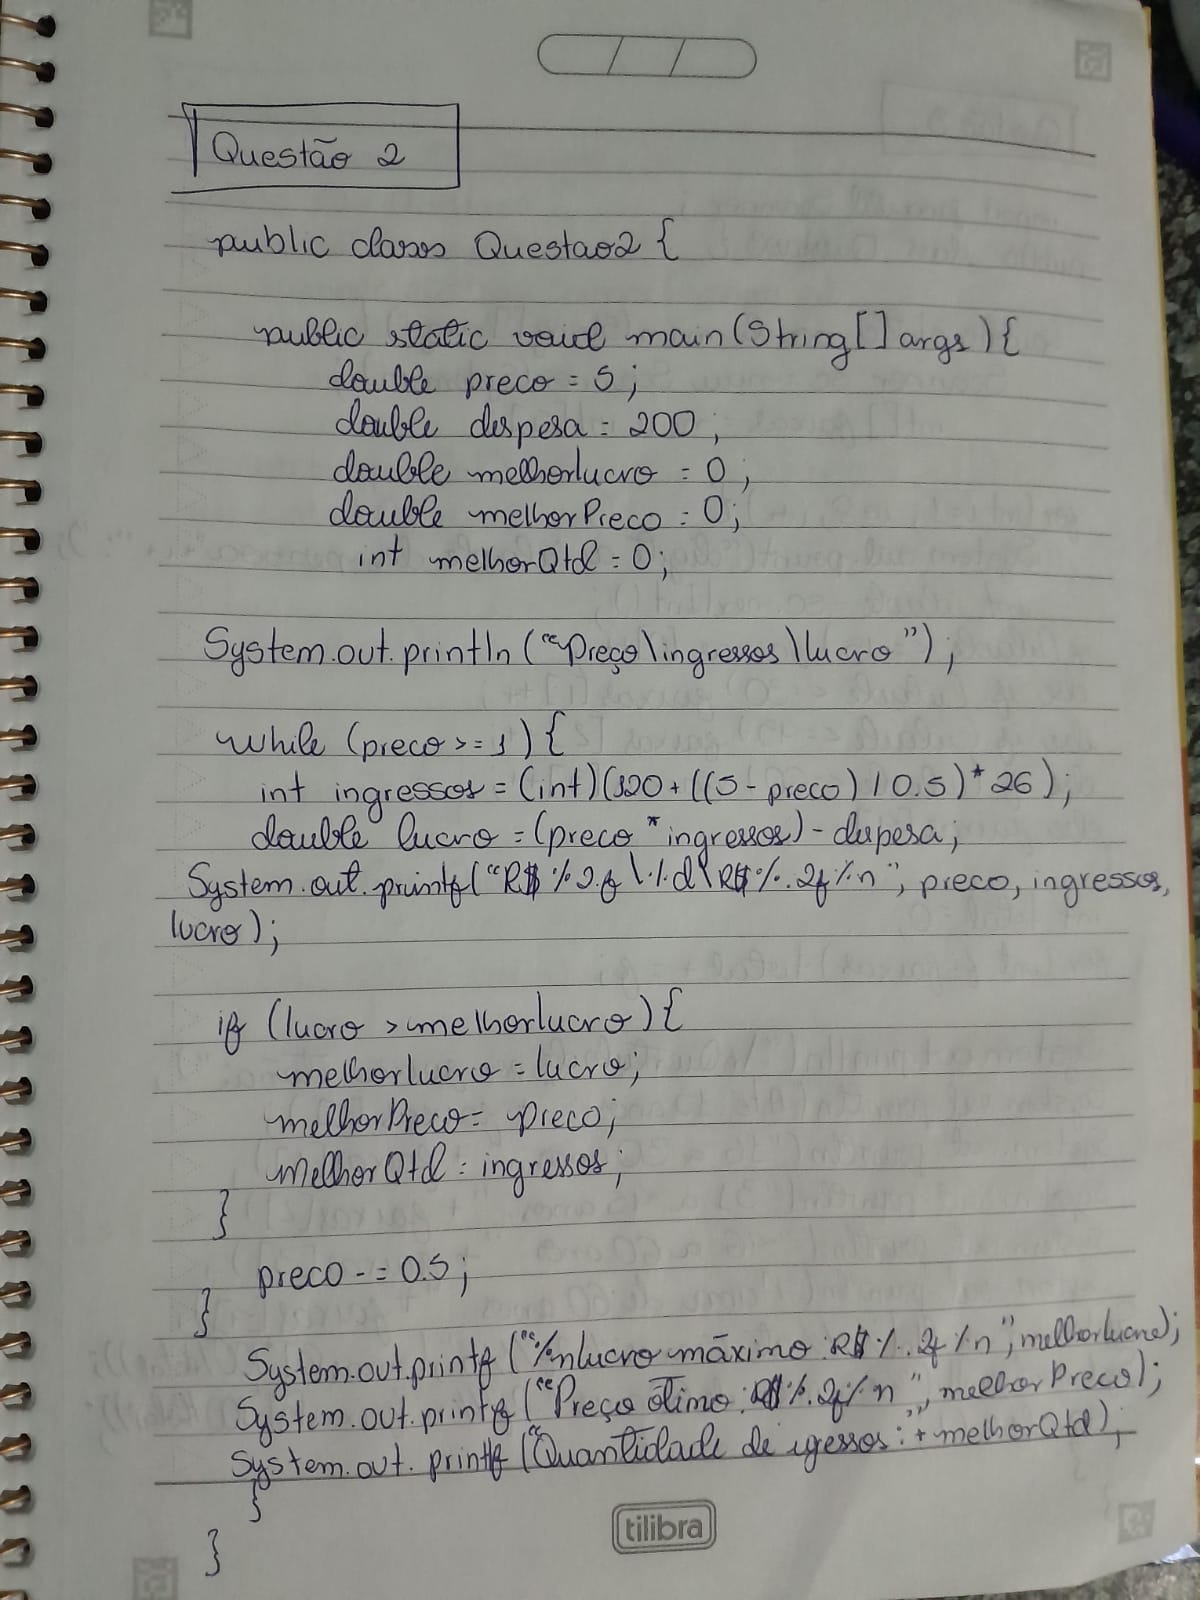 Questão 2
public class Questao2 {
public static void main(String[] args){
double preco = 5;
double despesa = 200;
double melhorlucro = 0;
double melhorPreco = 0;
int melhorQtd = 0;
System.out.println("Preço\ingressos\lucro");
while (preco >= 1){
int ingressos = (int)(120 + ((5 - preco) / 0.5) * 26);
double lucro = (preco * ingressos) - despesa;
System.out.printf("R$ %.2f \%d\R$ %.2f%n", preco, ingressos,
lucro);
if (lucro > melhorlucro){
melhorlucro = lucro;
melhorPreco = preco;
melhorQtd = ingressos;
}
preco -= 0.5;
}
System.out.printf("%nlucro máximo: R$ %.2f%n", melhorlucro);
System.out.printf("Preço ótimo: R$ %.2f%n", melhorPreco);
System.out.printf("Quantidade de igessos:"+ melhorQtd);
}
}
tilibra